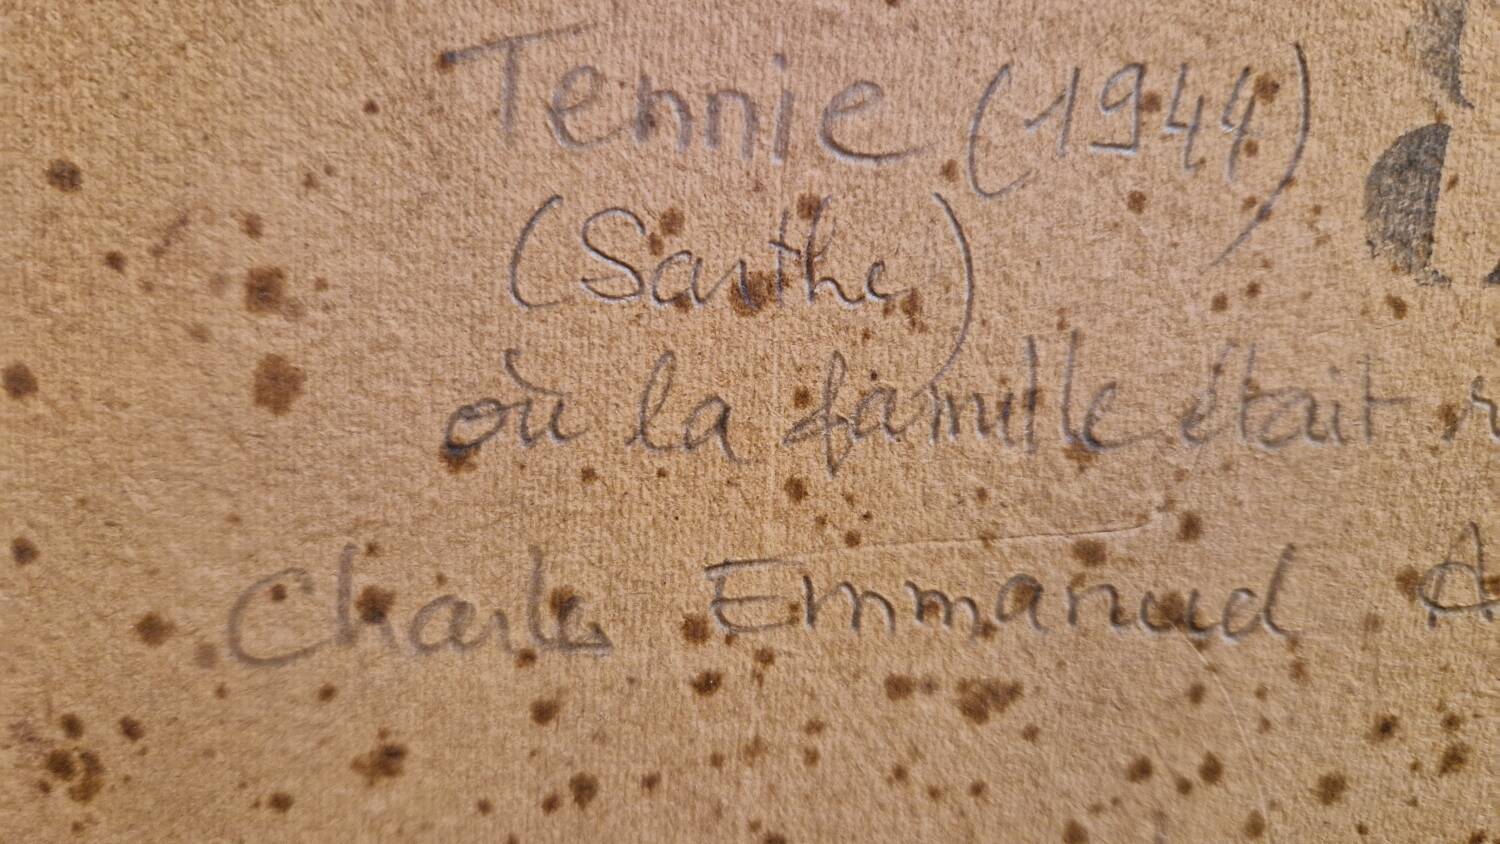 Tennie (1944)
(Sarthe)
où la famille était
Charles Emmanuel